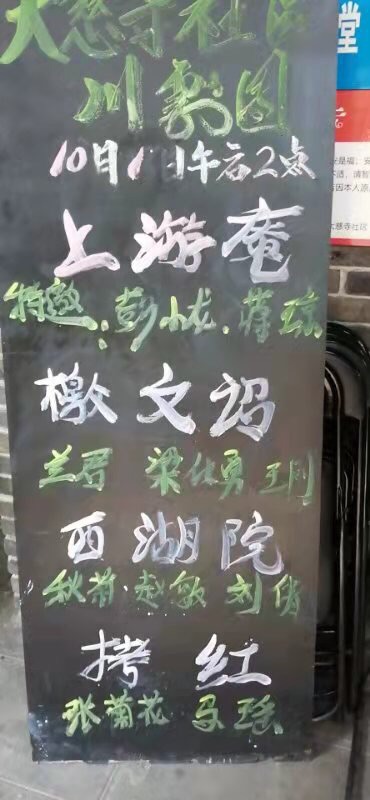 大慈寺社区
川剧团
10月1日午后2点
上游庵
特邀:彭小龙.蒋琼
檄文诏
兰君 梁仕勇 王刚
西湖院
秋菊.赵敏 刘俏
拷红
张菊花 马瑶
堂